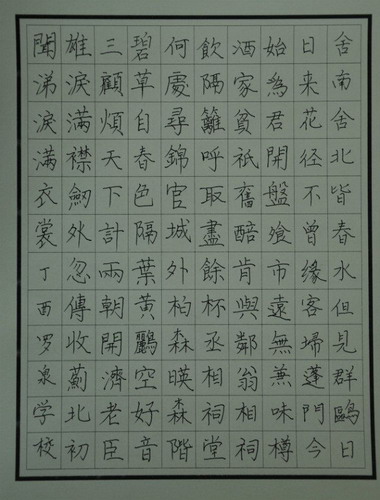 舍南舍北皆春水但見群鷗日
日来花径不曾緣客埽蓬門今
始為君開盤飧市遠無兼味樽
酒家貧祇舊醅肯與鄰翁相祠
飲隔籬呼取盡餘杯丞相祠堂
何處尋錦官城外柏森暎森階
碧草自春色隔葉黄鸝空好音
三顧煩天下計兩朝開濟老臣
雄淚滿襟劒外忽傳收薊北初
聞涕淚滿衣裳丁酉罗泉学校